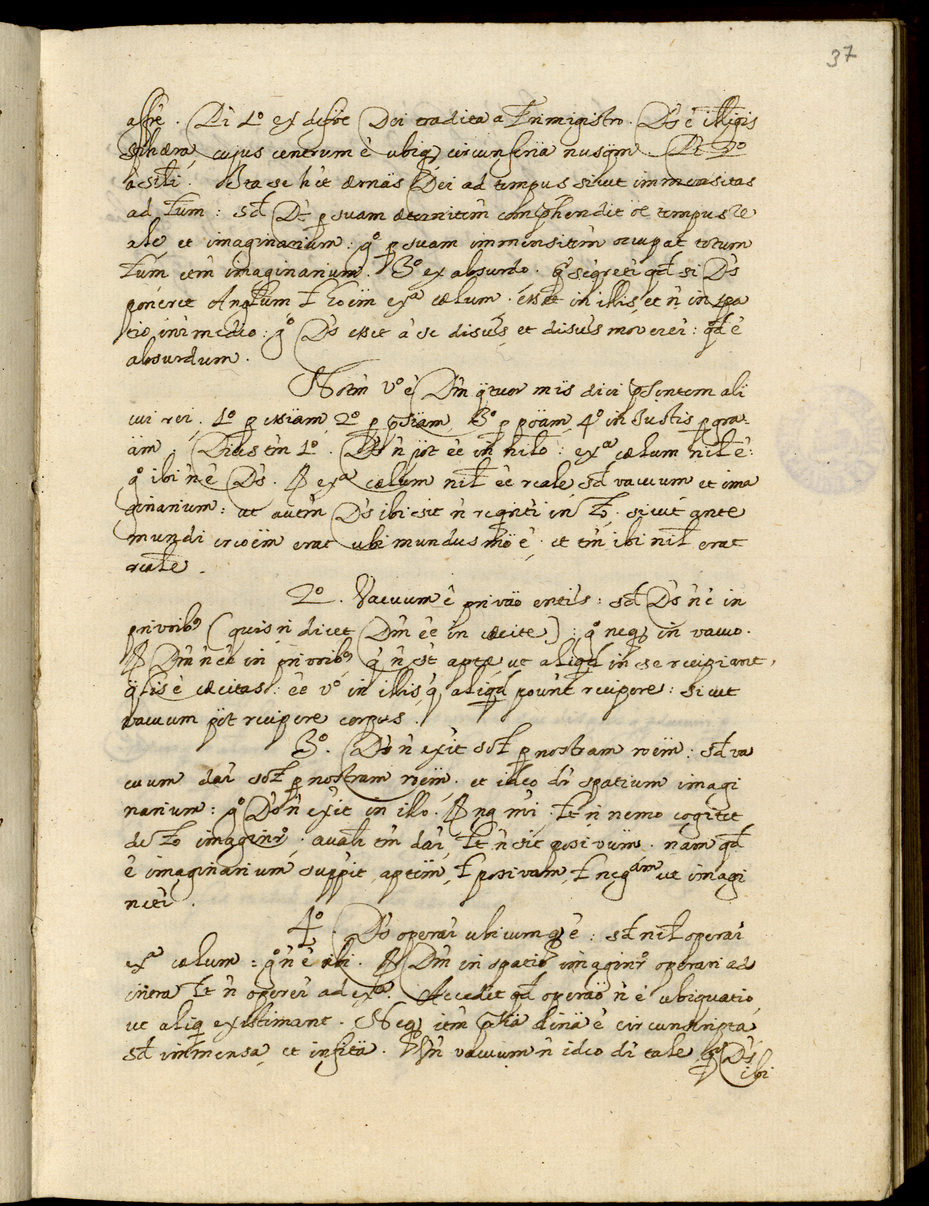 37
affrē. Di 1º ex difoē Dei tradita a Trimigistro. D's ē illigis
sphæra, cujus centrum ē ubiq, circunferīia nusqm. Di 2º
a sili. Ita se hēt æternäs Dei ad tempus sicut immensitas
ad Łum: sđ D's p suam æternitēm comphendit oē tempus re
ale et imaginarium: gº p suam immensitēm ocupat totum
Łum etm̄ imaginarium. 3º ex absurdo. q segreti qđ si D's
poneret Anglum Ł hoīem exª cælum. esset in illis, et n̄ in spa
tio inīmedio: gº D's esset à se disuls, et disuls moverei: qđ ē
absurdum.
Notm̄ vº ē Dm̄ qtuor mïs dici psentem ali
cui rei. 1º p essiam, 2º p psiam, 3º p poäm, 4º in Iustis p gra-
äm. Dices tm̄ 1º. D's n̄ pöt ēē in nilo: exª cælum nil ē:
gº ibi n̄ ē D's. R exª cælum nil ēē reale, sđ vacuum et ima
ginarium: ut autm̄ D's ibi sit n̄ reqriti in Ło. sicut ante
mundi creoēm erat ubi mundus mö ē. et tm̄ ibi nil erat
reale.
2º. Vacuum ē priväo entis: sđ D's n̄ ē in
privoibꝰ (quis n̄ dicet Dm̄ ēē in cæcite): gº neq, in vacuo.
R Dm̄ n̄ ēē in privoibꝰ q n̄ st aptæ ut aliqđ in se recipiant,
qlis ē cæcitas: ēē vº in illis q aliqđ poünt recipere: sicut
vacuum pöt recipere corpus.
3º. D's n̄ exit sol p nostram roëm: sđ va
cuum dai sol p nostram roëm. et ideo di spatium imagi
narium: gº D's n̄ exit in illo. R ng mi. Łt n̄ nemo cogitet
de Ło imaginº. avali tm̄ dai, Łt n̄ sit posivum. nam qđ
ē imaginarium suppit aptëm, Ł posivam, Ł negam ut imagi
neti.
4º. D's operai ubicumq ē: sđ nil operai
exª cælum: gº n̄ ē ibi. R Dm̄ in spatio imaginº operari ad
intra Łt n̄ operei ad exª. Accedit qđ operäo n̄ ē ubiquatio,
ut aliq existimant. Neq, itm̄ pssia dinä ē circunscripta,
sđ immensa, et infita. Vn̄ vacuum n̄ ideo di tale q D's
ibi